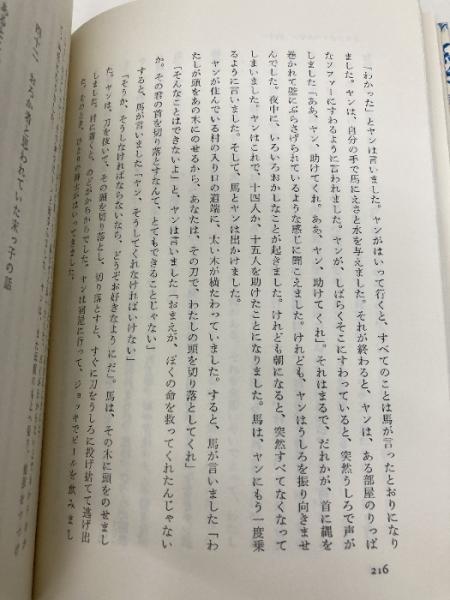 「わかった」とヤンは言いました。ヤンがはいって行くと、すべてのことは馬が言ったとおりになり
ました。ヤンは、自分の手で馬にえさと水を与えました。それが終わると、ヤンは、ある部屋のりっぱ
なソファーにすわるように言われました。ヤンが、しばらくそこにすわっていると、突然うしろで声が
しました「ああ、ヤン、助けてくれ。ああ、ヤン、助けてくれ」。それはまるで、だれかが、首に縄を
巻かれて壁にぶらさげられているような感じに聞こえました。けれども、ヤンはうしろを振り向きませ
んでした。夜中に、いろいろおかしなことが起きました。けれども朝になると、突然すべてなくなって
しまいました。ヤンはこれで、十四人か、十五人を助けたことになりました。馬は、ヤンにもう一度乗
るように言いました。そして、馬とヤンは出かけました。
ヤンが住んでいる村の入り口の道端に、太い木が横たわっていました。すると、馬が言いました「わ
たしが頭をあの木にのせるから、あなたは、その刀で、わたしの頭を切り落としてくれ」
「そんなことはできないよ」と、ヤンは言いました「おまえが、ぼくの命を救ってくれたんじゃない
か。その君の首を切り落とすなんて、とてもできることじゃない」
すると、馬が言いました「ヤン、そうしてくれなければいけない」
「そうか、そうしなければならないなら、どうぞお好きなようにだ」。馬は、その木に頭をのせまし
た。ヤンは、刀を抜いて、その頭を切り落とすと、すぐに刀をうしろに投げ捨てて逃げ出
しました。村に着くと、のどがからからでした。ヤンは宿屋に行って、ジョッキでビールを飲みまし
た。そのとき、ひとりの紳士がはいってきました。
四十二 おろか者と思われていた末っ子の話
216